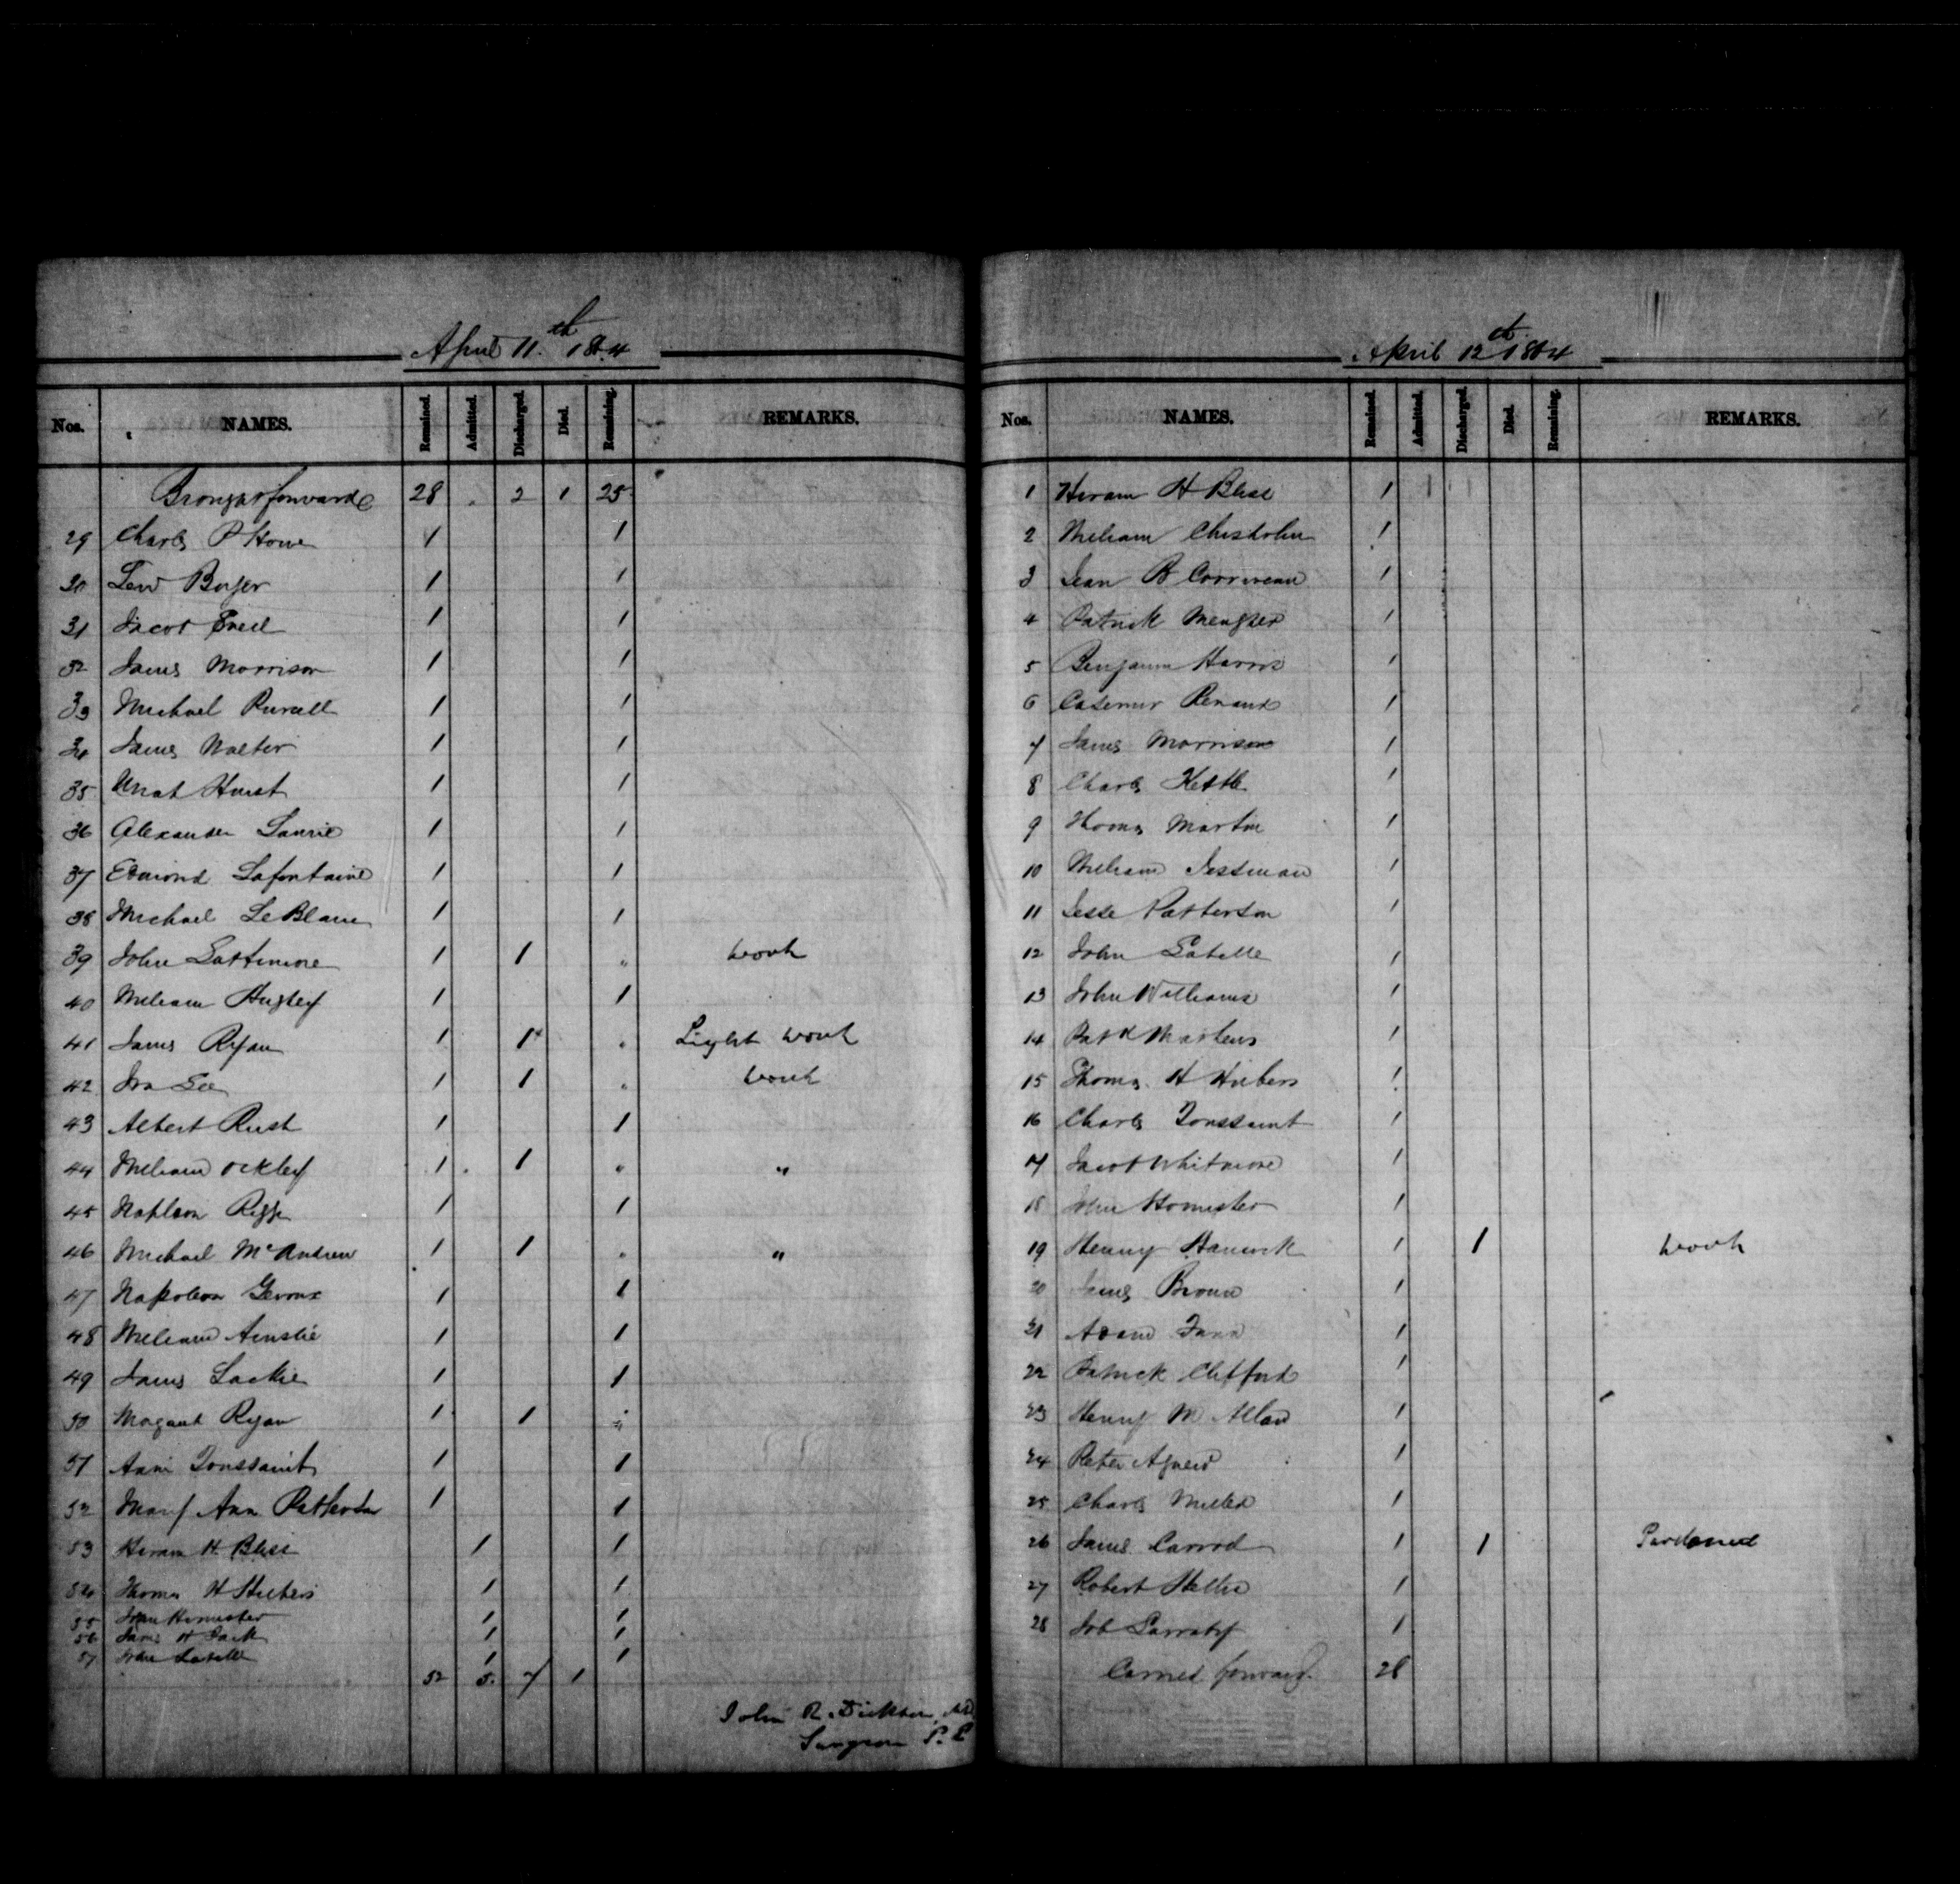 April 11th 1864
Nos. NAMES. Remained. Admitted. Discharged. Died. Remaining. REMARKS.
Brought forward 28 2 1 25
29 Charles P Howe 1 1
30 Levi Boyer 1 1
31 Jacob 1 1
32 James Morrison 1 1
33 Michael Purcell 1 1
34 James Walter 1 1
35 Hurst 1 1
36 Alexander Laurie 1 1
37 Edmond Lafontaine 1 1
38 Michael LeBlanc 1 1
39 John Lattimore 1 1 " work
40 William Hugley 1 1
41 James Ryan 1 1 " Light work
42 Ira Lee 1 1 " work
43 Albert Rush 1 1
44 William Ockley 1 1 " "
45 1 1
46 Michael McAndrew 1 1 " "
47 Napoleon 1 1
48 William Ainslie 1 1
49 James Lackie 1 1
50 Margaret Ryan 1 1 "
51 Toussaint 1 1
52 Mary Ann Patterson 1 1
53 Hiram H. Bliss 1 1
54 Thomas H 1 1
55 John Homister 1 1
56 James H Jack 1 1
57 John Labelle 1 1
52 5 7 1
John R. Dickson, MD
Surgeon P. P.
April 12th 1864
Nos. NAMES. Remained. Admitted. Discharged. Died. Remaining. REMARKS.
1 Hiram H Bliss 1
2 William Chisholm 1
3 Jean B Corriveau 1
4 Patrick Meagher 1
5 Benjamin Harris 1
6 Casemir Renaud 1
7 James Morrison 1
8 Charles Kettle 1
9 Thomas Martin 1
10 William Jessman 1
11 Jesse Patterson 1
12 John Labelle 1
13 John Williams 1
14 Patk 1
15 Thomas H 1
16 Charles Toussaint 1
17 Jacob Whitmore 1
18 John Homister 1
19 Henry Hancock 1 1 work
20 James Brown 1
21 Adam 1
22 Patrick Clifford 1
23 Henry M Allan 1
24 Peter Agnew 1
25 Charles Miller 1
26 James Carrol 1 1 Pardoned
27 Robert 1
28 Job 1
Carried forward. 28